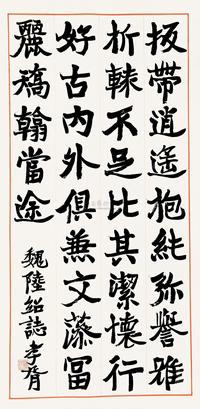 扳帶逍遙抱純弥譽雖
析棘不足比其潔懷行
好古内外俱兼文藻冨
麗稿翰當途
魏陸紹誌孝胥